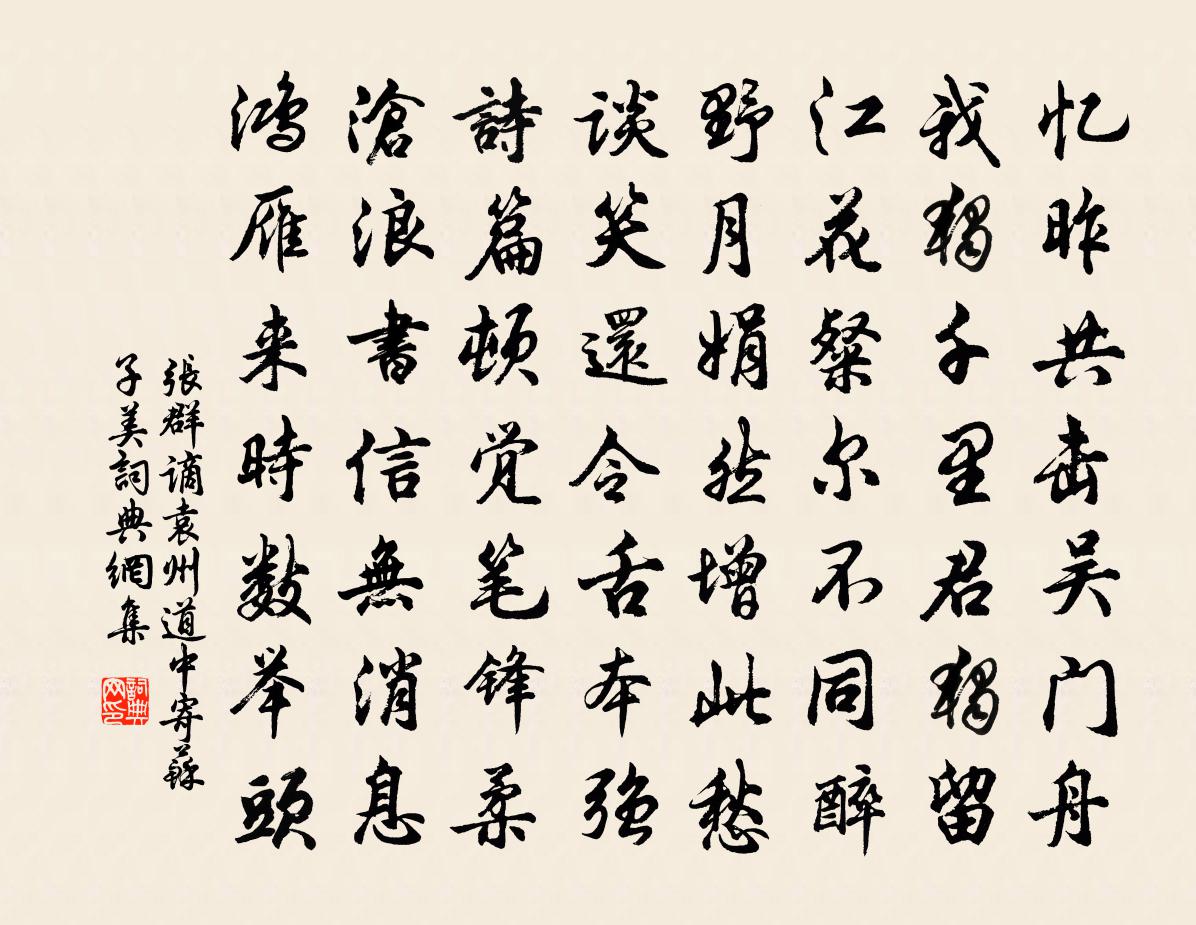 忆昨共击吴门舟
我独千里君独留
江花粲尔不同醉
野月娟然增此愁
谈笑還令舌本强
詩篇顿觉笔锋柔
滄浪書信無消息
鸿雁来時数举頭
張群谪袁州道中寄蘇
子美詞典網集
詞典网印